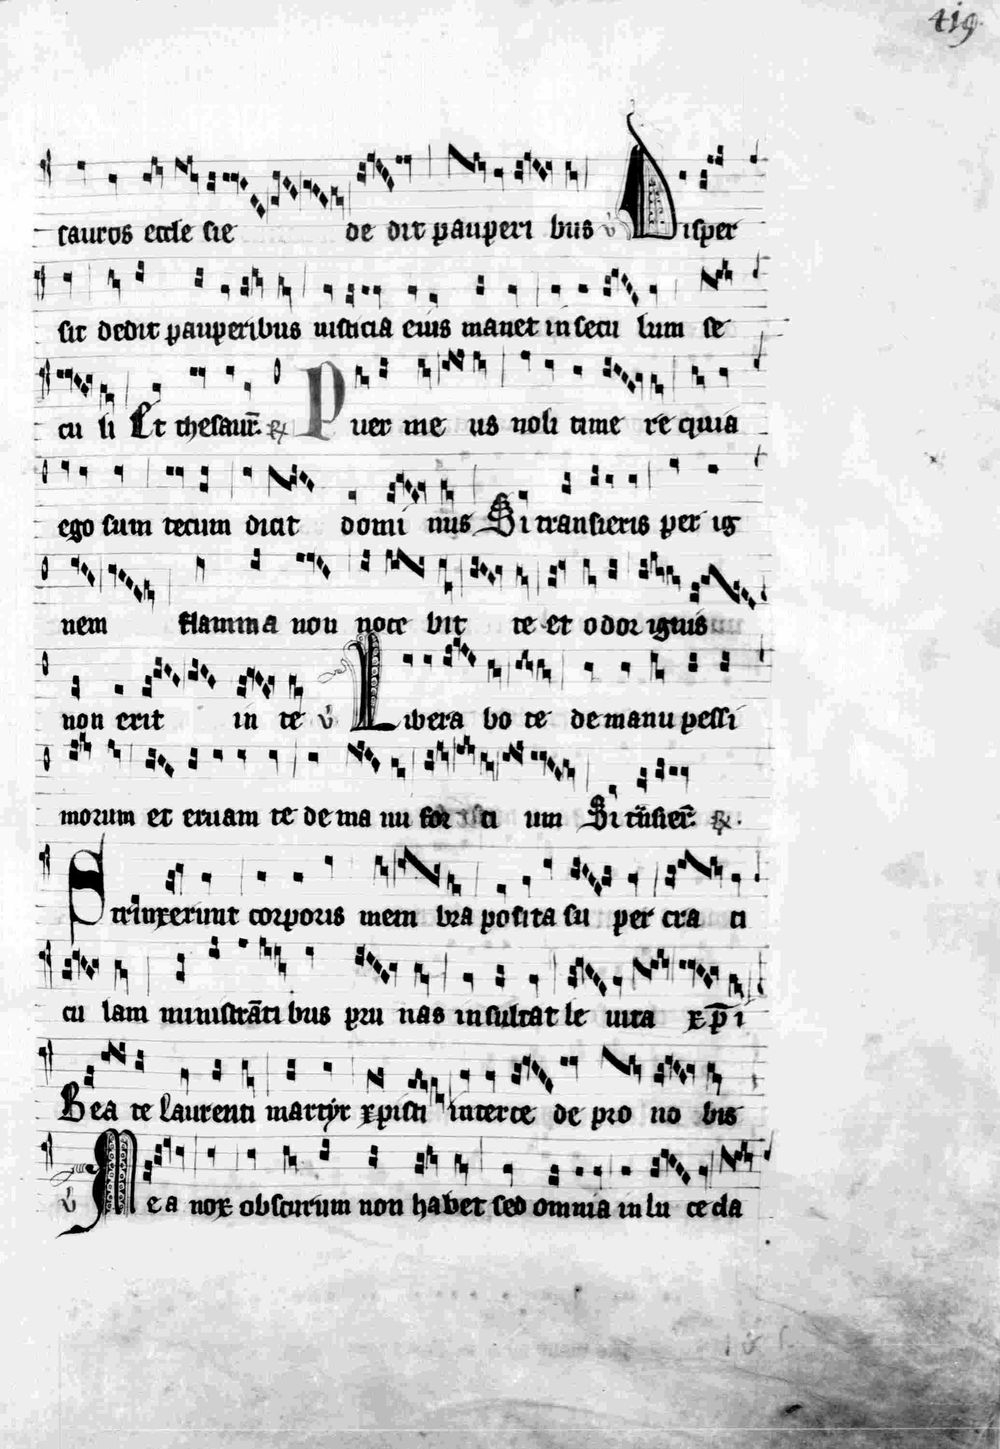 419.
sauros eccle sie de dit pauperi bus v Disper
sit dedit pauperibus iusticia eius manet in secu lum se
cu li Et thesaur. R Puer me us noli time re quia
ego sum tecum dicit domi nus Si transieris per ig
nem flamma non noce bit te et odor ignis
non erit in te v Libera bo te de manu pessi
morum et eruam te de ma nu for ti um Si trāsier. R.
Strinxerunt corporis mem bra posita su per cra ti
cu lam ministrāti bus pru nas insultat le uita xp̄i
Bea te Laurenti martyr xpisti interce de pro no bis
v Mea nox obscurum non habet sed omnia in lu ce cla